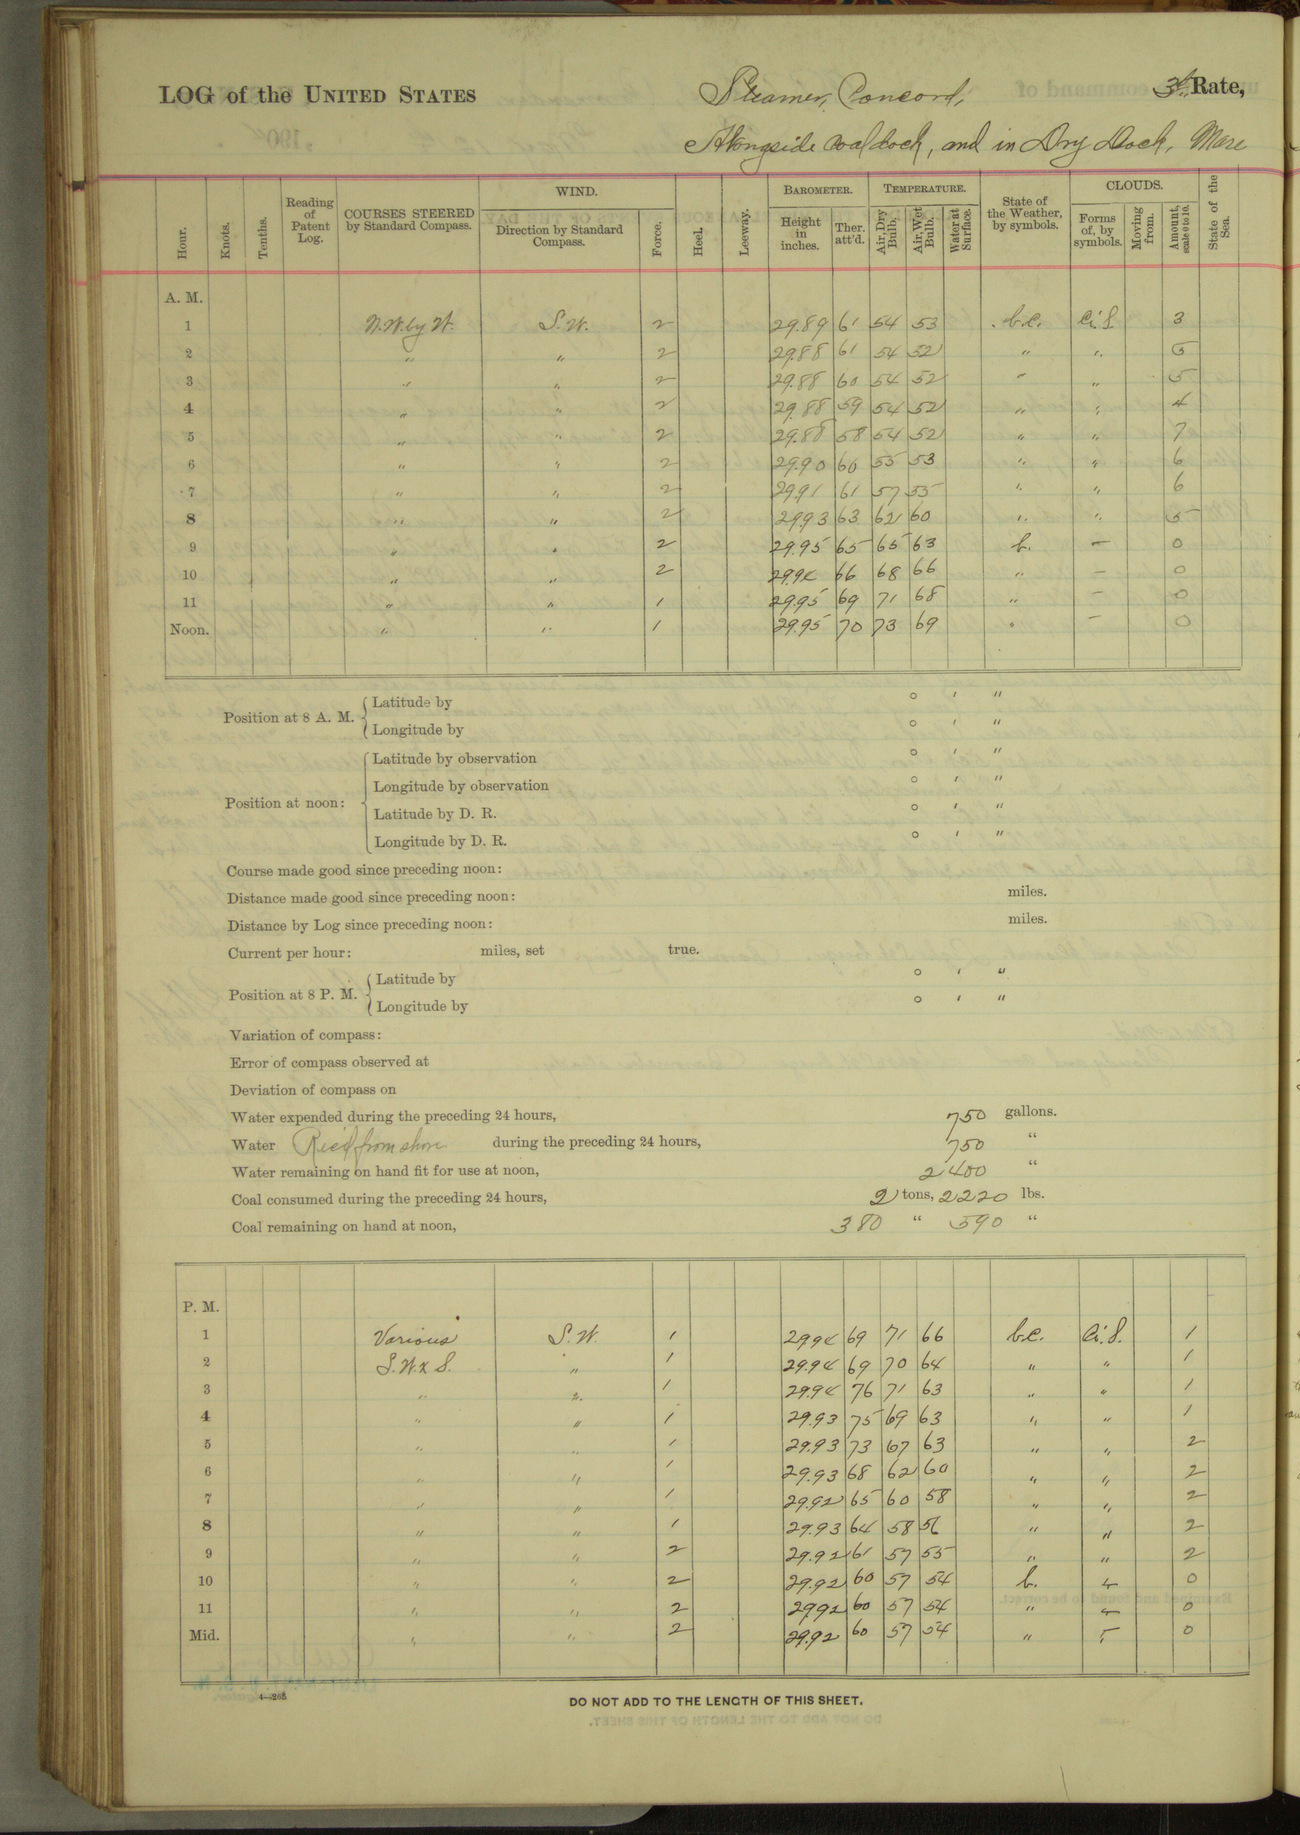 LOG of the UNITED STATES Steamer, Concord, 3d. Rate,
Alongside coal dock, and in Dry Dock, Mare
Hour. Knots. Tenths. Reading of Patent Log. COURSES STEERED by Standard Compass. WIND. Direction by Standard Compass. Force. Heel. Leeway. BAROMETER. Height in inches. Ther. att'd. TEMPERATURE. Air, Dry Bulb. Air, Wet Bulb. Water at Surface. State of the Weather, by symbols. CLOUDS. Forms of, by symbols. Moving from. Amount, scale 0 to 10. State of the Sea.
A. M.
1 N.W. by W. S.W. 2 29.89 61 54 53 b.c. Ci.S. 3
2 " " 2 29.88 61 54 52 " " 5
3 " " 2 29.88 60 54 52 " " 5
4 " " 2 29.88 59 54 52 " " 4
5 " " 2 29.88 58 54 52 " " 7
6 " " 2 29.90 60 55 53 " " 6
7 " " 2 29.91 61 57 55 " " 6
8 " " 2 29.93 63 62 60 " " 5
9 " " 2 29.95 65 65 63 b. — 0
10 " " 2 29.94 66 68 66 " — 0
11 " " 1 29.95 69 71 68 " — 0
Noon. " " 1 29.95 70 73 69 " — 0
Position at 8 A. M. { Latitude by ° ' "
Longitude by ° ' "
Position at noon: { Latitude by observation ° ' "
Longitude by observation ° ' "
Latitude by D. R. ° ' "
Longitude by D. R. ° ' "
Course made good since preceding noon:
Distance made good since preceding noon: miles.
Distance by Log since preceding noon: miles.
Current per hour: miles, set true.
Position at 8 P. M. { Latitude by ° ' "
Longitude by ° ' "
Variation of compass:
Error of compass observed at
Deviation of compass on
Water expended during the preceding 24 hours, 750 gallons.
Water Rec'd from shore during the preceding 24 hours, 750 "
Water remaining on hand fit for use at noon, 2400 "
Coal consumed during the preceding 24 hours, 2 tons, 2220 lbs.
Coal remaining on hand at noon, 380 " 590 "
P. M.
1 Various S.W. 1 29.94 69 71 66 b.c. Ci.S. 1
2 S.W. x S. " 1 29.94 69 70 64 " " 1
3 " " 1 29.94 76 71 63 " " 1
4 " " 1 29.93 75 69 63 " " 1
5 " " 1 29.93 73 67 63 " " 2
6 " " 1 29.93 68 62 60 " " 2
7 " " 1 29.92 65 60 58 " " 2
8 " " 1 29.93 64 58 56 " " 2
9 " " 2 29.92 61 57 55 " " 2
10 " " 2 29.92 60 57 54 b. — 0
11 " " 2 29.92 60 57 54 " — 0
Mid. " " 2 29.92 60 57 54 " — 0
4—265
DO NOT ADD TO THE LENGTH OF THIS SHEET.